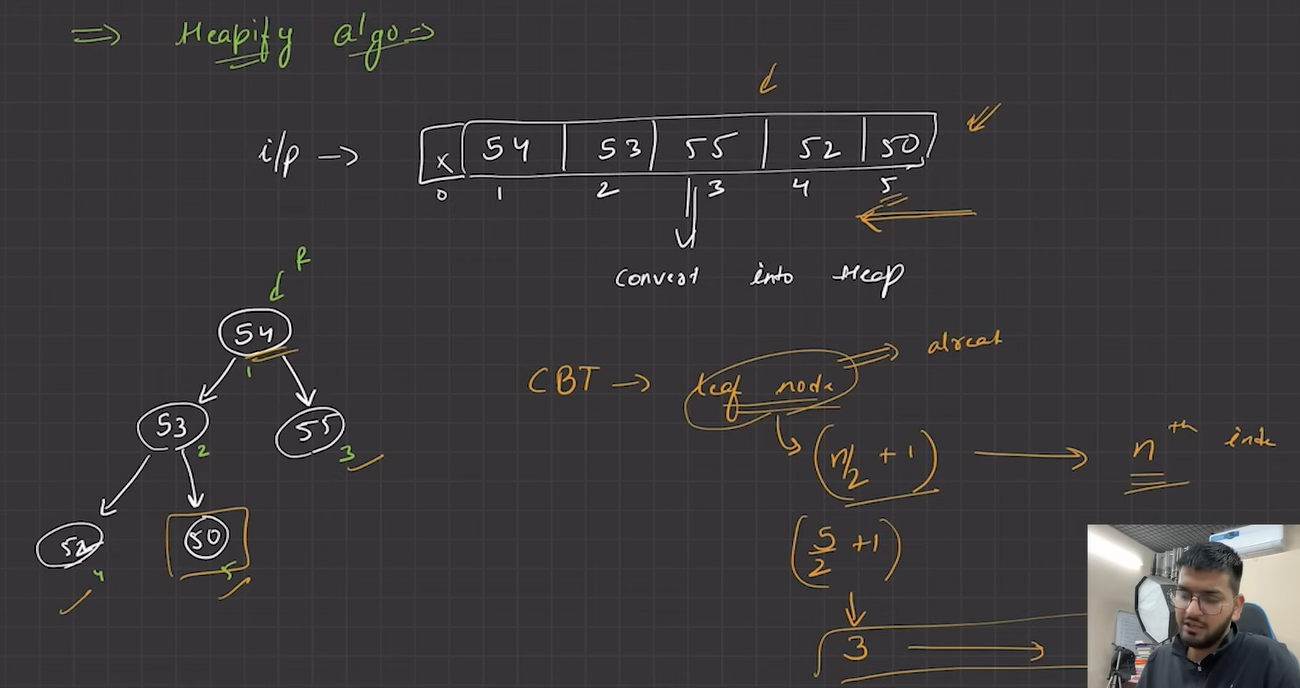 ⇒ Heapify algo ⇒
i/p → x 54 53 55 52 50
0 1 2 3 4 5
Convert into Heap
R
54
1
53 55
2 3
52 50
4 5
CBT → leaf node ⇒ alread
(n/2 + 1) → nth inde
(5/2 + 1)
3 →